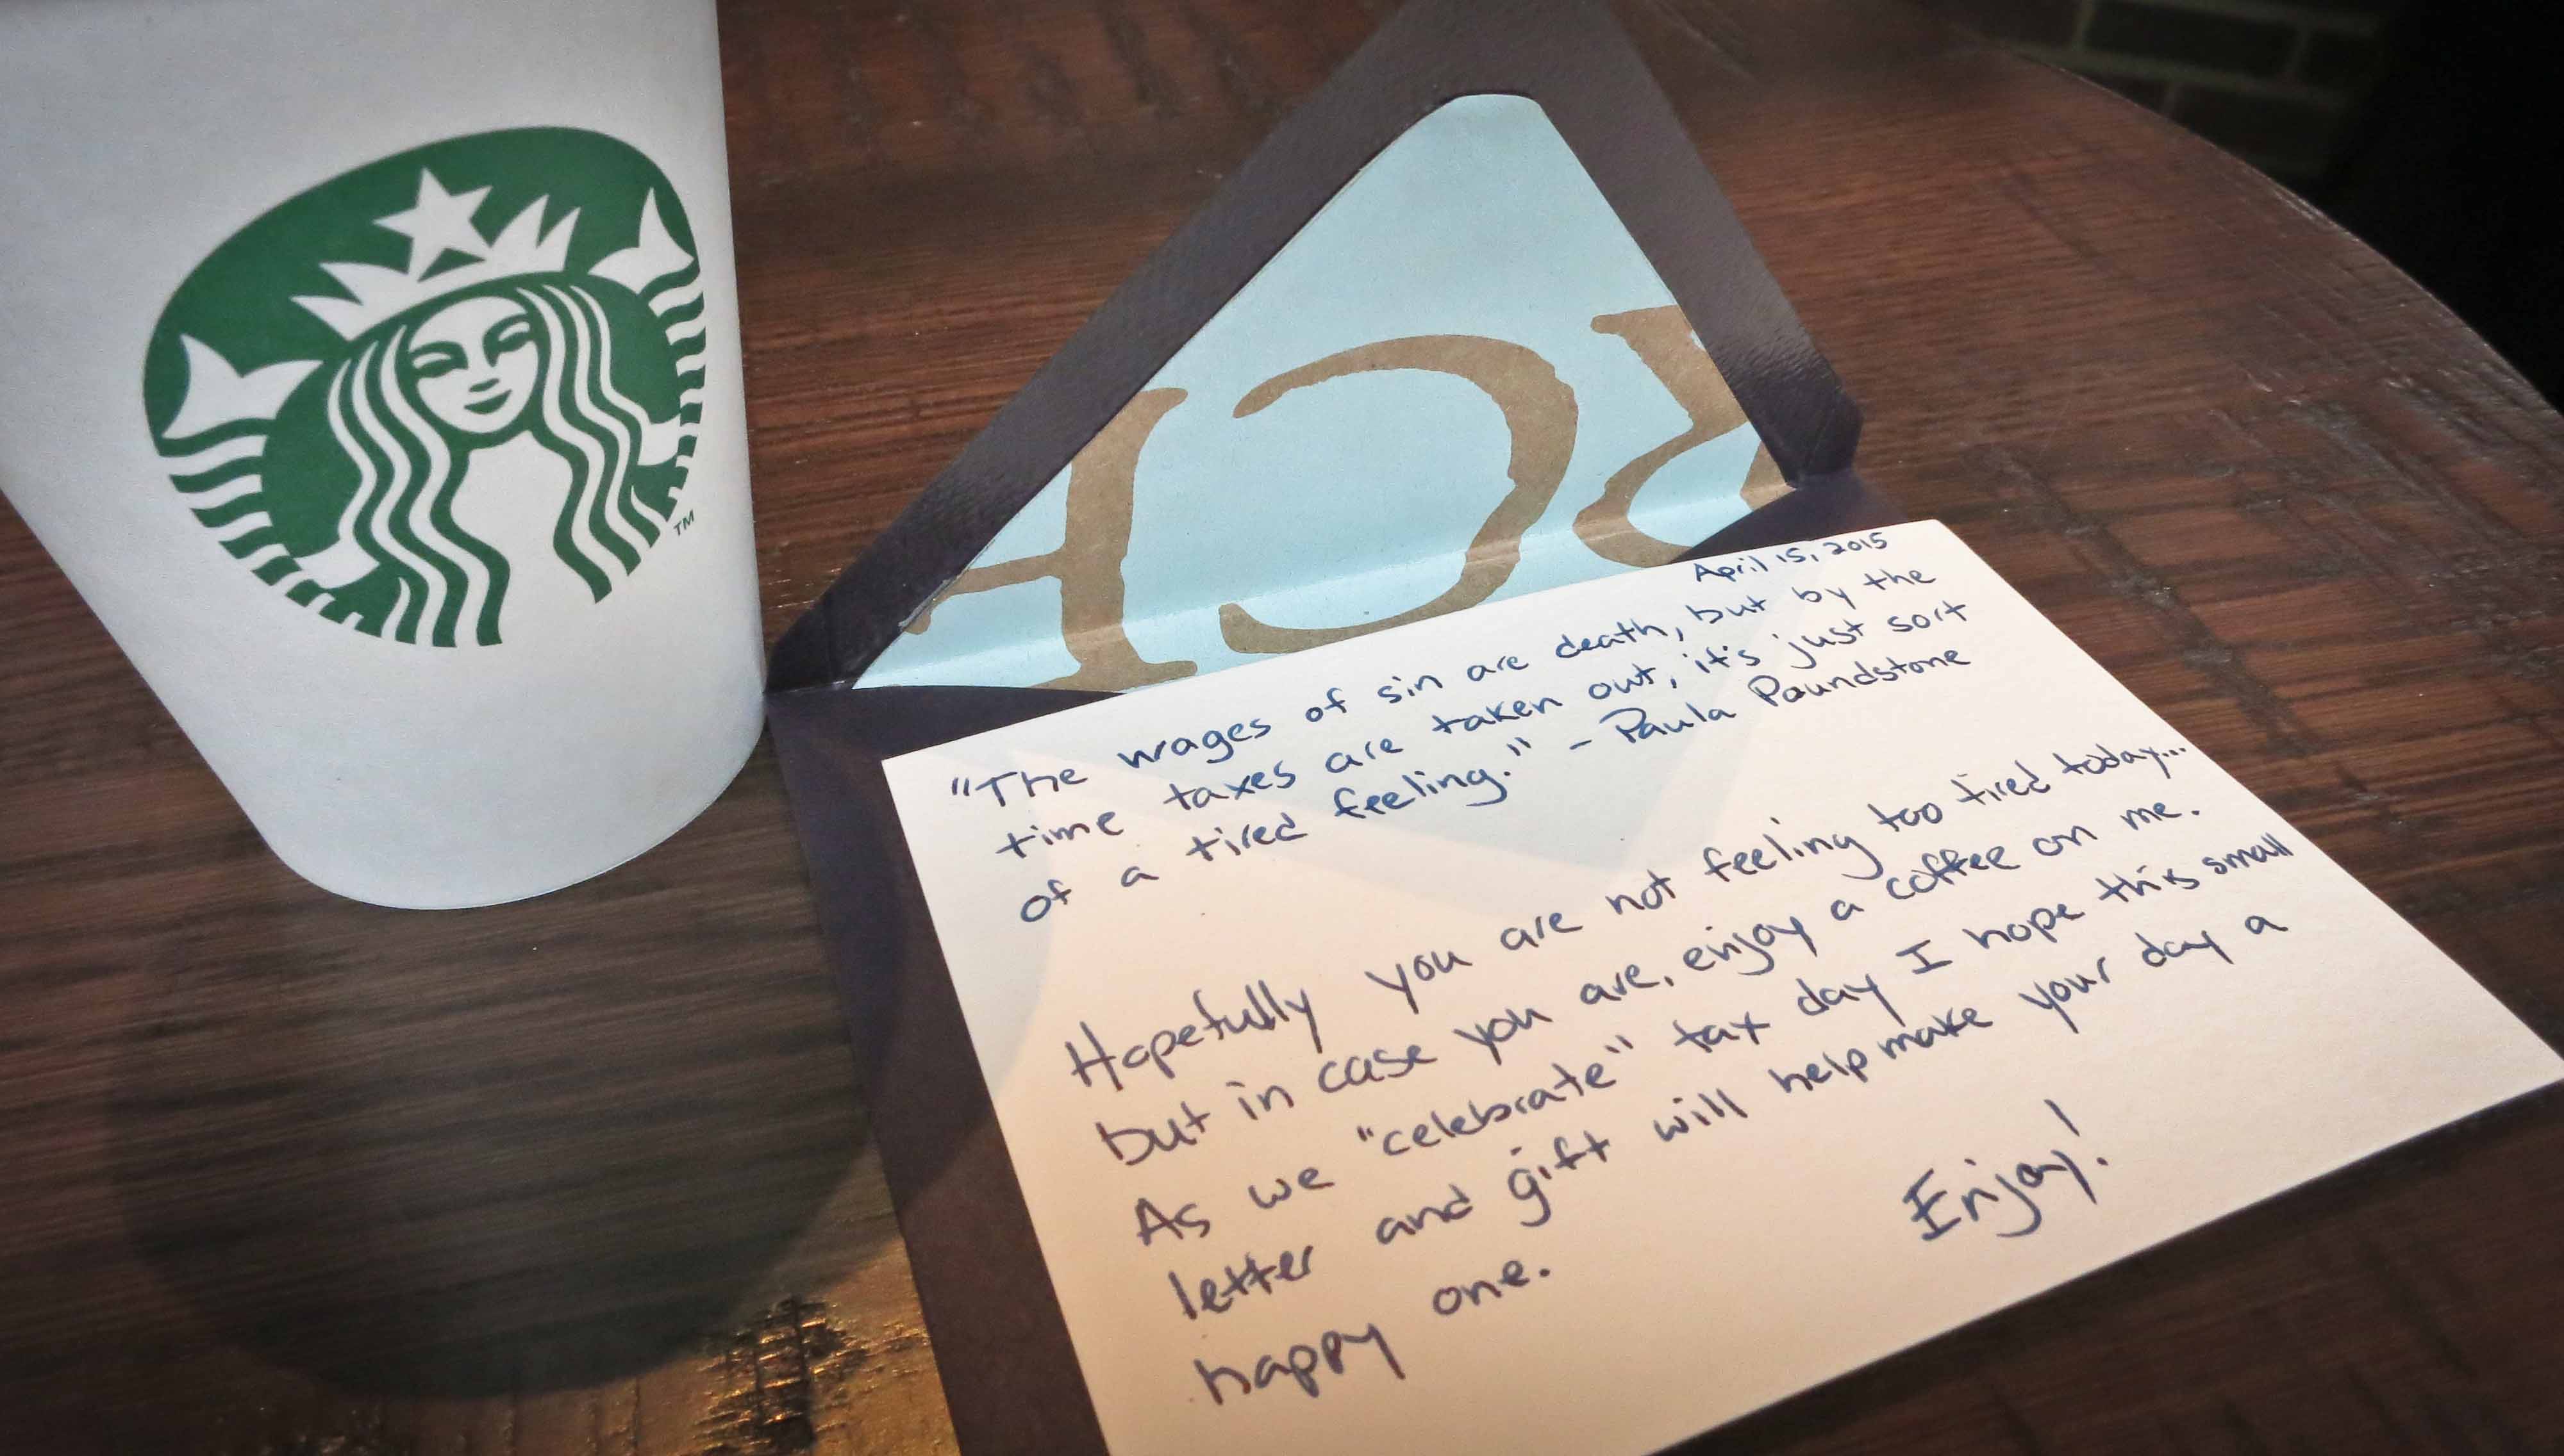 TM
April 15, 2015
"The wages of sin are death, but by the
time taxes are taken out, it's just sort
of a tired feeling." - Paula Poundstone
Hopefully you are not feeling too tired today...
but in case you are, enjoy a coffee on me.
As we "celebrate" tax day I hope this small
letter and gift will help make your day a
happy one.
Enjoy!